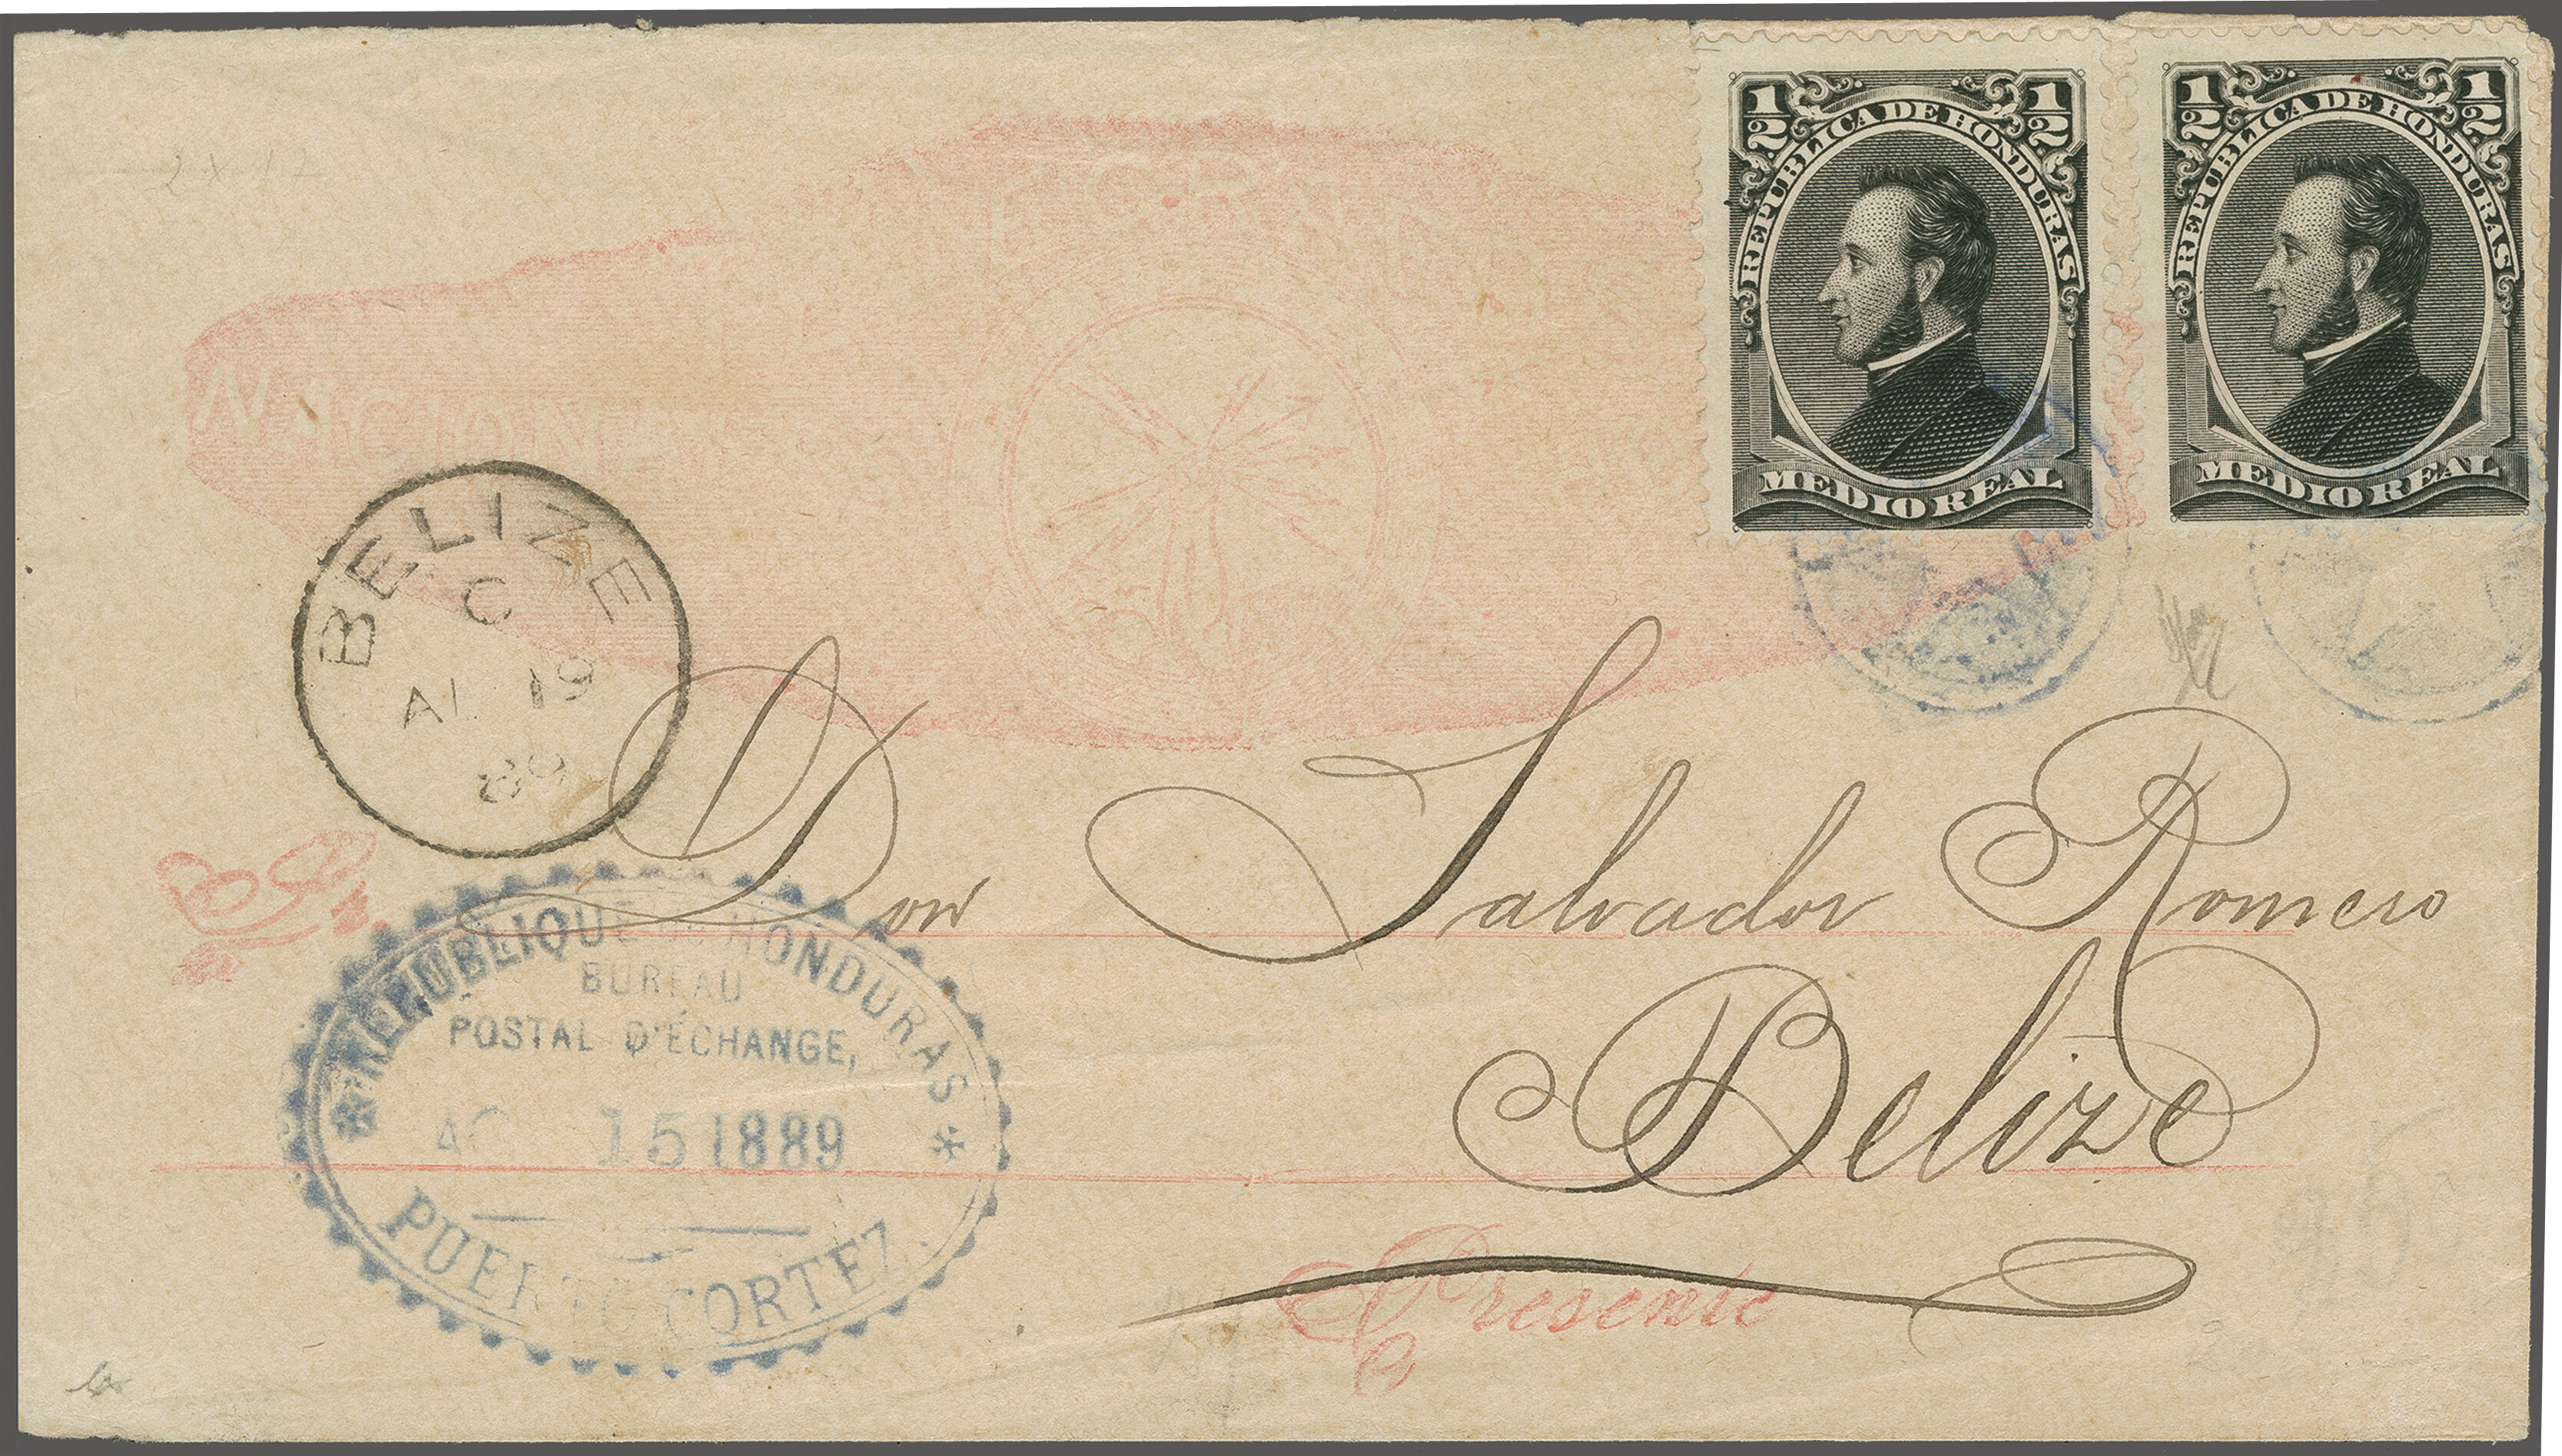 1/2 1/2
REPUBLICA DE HONDURAS
MEDIO REAL
1/2 1/2
REPUBLICA DE HONDURAS
MEDIO REAL
2 x 17
BELIZE
C
AU 19
89
Don Salvador Romero
Belize
REPUBLIQUE HONDURAS
BUREAU
POSTAL D'ÉCHANGE,
15 1889
PUERTO CORTEZ.
Sr.
Presente